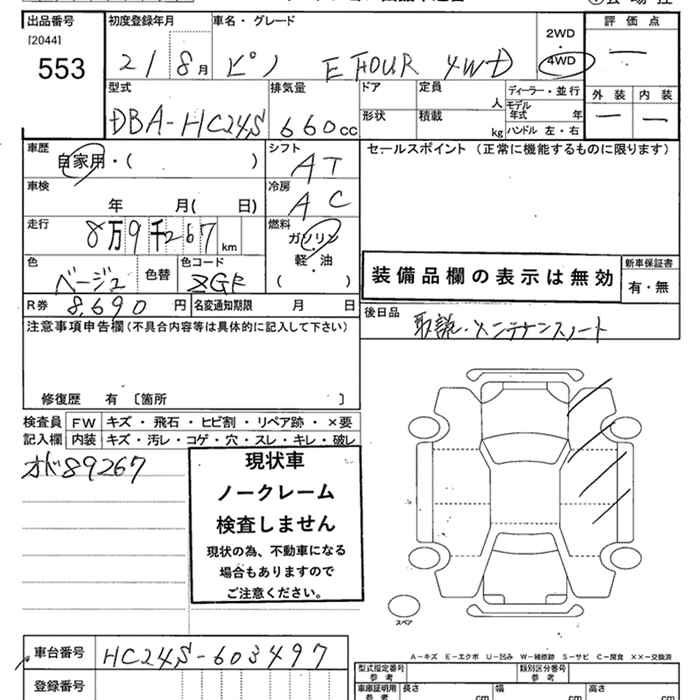 出品番号 初度登録年月 車名・グレード 評価点
[2044] 2WD
553 21 8月 ピノ E FOUR 4WD ・ 4WD ー
型式 排気量 ドア 定員 人 ディーラー・並行 外装 内装
DBA-HC24S 660cc 形状 積載 kg モデル年式 年 ー ー
ハンドル 左・右
車歴 シフト セールスポイント (正常に機能するものに限ります)
自家用・( ) AT
車検 冷房
年 月( 日) AC
走行 燃料
8万9千267km ガソリン
軽・油
色 色替 色コード ( )
ベージュ ZGF
装備品欄の表示は無効 新車保証書
有・無
R券 8,690円 名変通知期限 月 日
後日品 取説・メンテナンスノート
注意事項申告欄(不具合内容等は具体的に記入して下さい)
修復歴 有 〔箇所 〕
検査員 FW キズ・飛石・ヒビ割・リペア跡・×要
記入欄 内装 キズ・汚レ・コゲ・穴・スレ・キレ・破レ
オド89267
現状車
ノークレーム
検査しません
現状の為、不動車になる
場合もありますので
ご注意ください。
スペア
A-キズ E-エクボ U-凹み W-補修跡 S-サビ C-腐食 ××-交換済
車台番号 HC24S-603497
型式指定番号 参考 類別区分番号 参考
登録番号 車庫証明用 参考 長さ cm 幅 cm 高さ cm